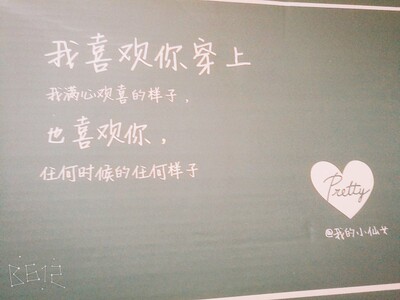 我喜欢你穿上
我满心欢喜的样子，
也喜欢你，
任何时候的任何样子
Pretty
@我的小仙女